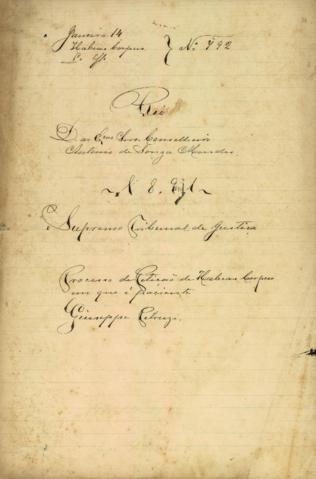 Janeiro 14
Habeas Corpus
Nº 792
D. ao Exmo Snr. Conselheiro
Antonio de Souza Mendes
Supremo Tribunal de Justiça
Processo de Petição de Habeas Corpus
em que é paciente
Giuseppe